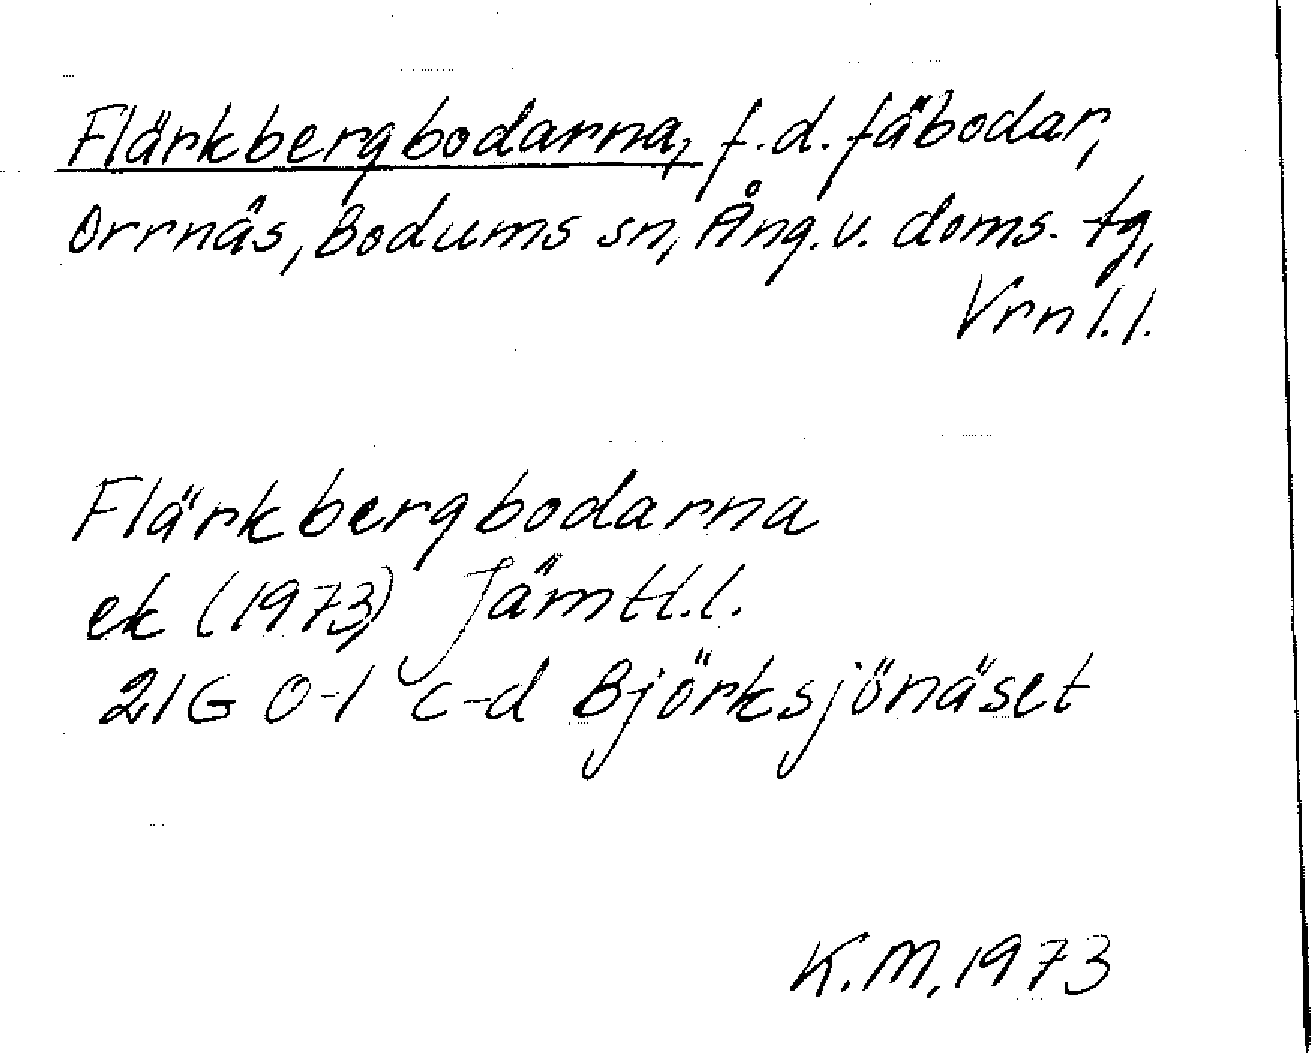 Flärkbergbodarna, f.d. fäbodar,
Orrnäs, Bodums sn, Ång. v. doms. tg,
Vrnl.l.
Flärkbergbodarna
ek (1973) Jämtl.l.
21G 0-1 c-d Björksjönäset
K.M. 1973